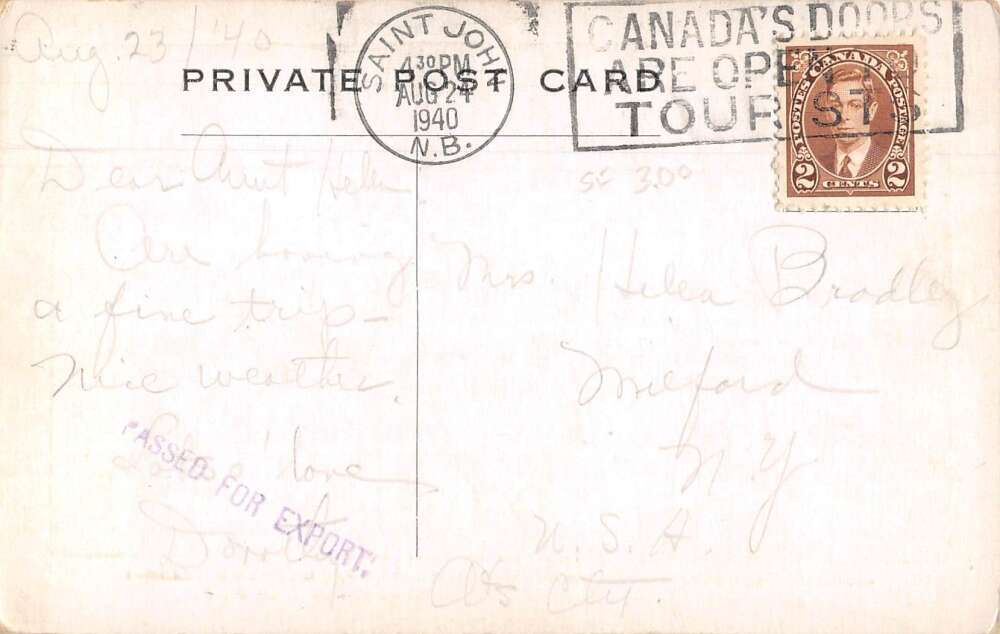 Aug. 23/'40
PRIVATE POST CARD
SAINT JOHN
4 30 PM
AUG 24
1940
N.B.
CANADA'S DOORS
ARE OPEN TO
TOURISTS
POSTES CANADA POSTAGE
2 CENTS 2
3.00
Dear Aunt Helen
Are having
a fine trip-
Nice weather.
love
PASSED FOR EXPORT.
Mrs. Helen Bradley
Milford
N.Y.
U.S.A.